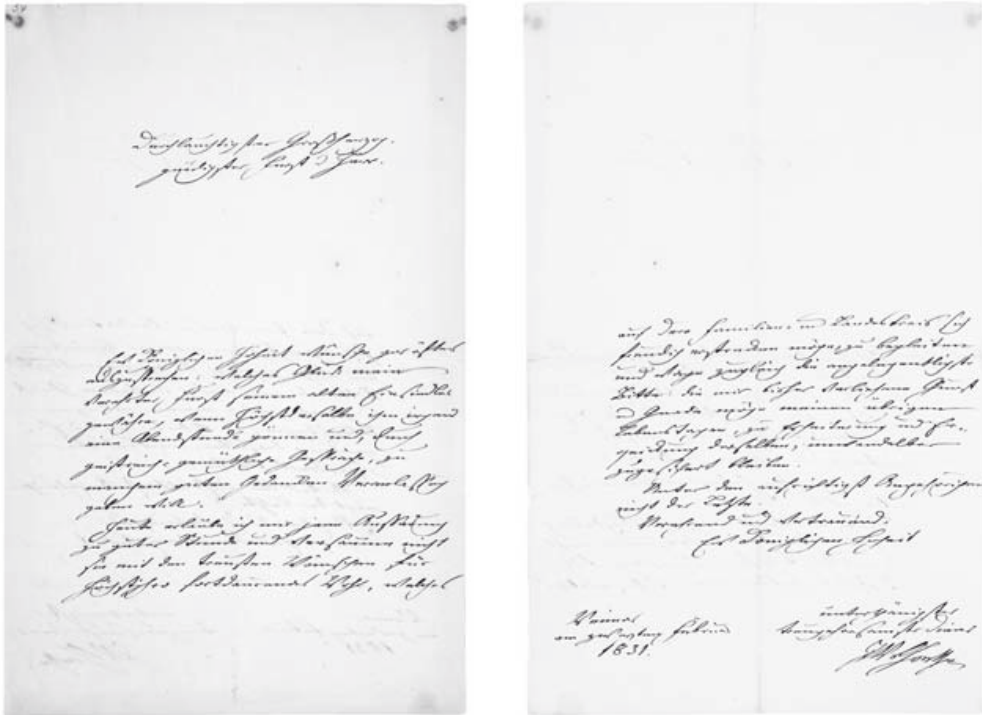 Durchlauchtigster Großherzog,
gnädigster Fürst u Herr.
Ew Königlichen Hoheit wünsche gar öfters
auszusprechen: welches Glück mein
verehrter Fürst seinem alten Einsiedler
gewähre, wenn Höchstderselbe ihm irgend
eine Abendstunde gönnen und, durch
geistreich-gemüthliche Gespräche, zu
manchem guten Gedanken Veranlassung
geben will.
Heute erlaube ich mir jene Äußerung
zu guter Stunde und versäume nicht
sie mit den treusten Wünschen für
Höchstihro fortdauerndes Wohl, welches
auf Dero Familien- und Landeskreis sich
freudig erstrecken möge, zu begleiten
und füge zugleich die angelegentlichste
Bitte: die mir bisher verliehene Gunst
u Gnade möge meinen übrigen
Lebenstagen, zu Erheiterung und
derselben, unwandelbar
zugesichert bleiben.
Unter den aufrichtigst Angehörigen
nicht der Letzte.
Verehrend und vertrauend.
Ew Königlichen Hoheit
Weimar
am Februar
1831.
unterthänigster
treugehorsamster Diener
JWvGoethe